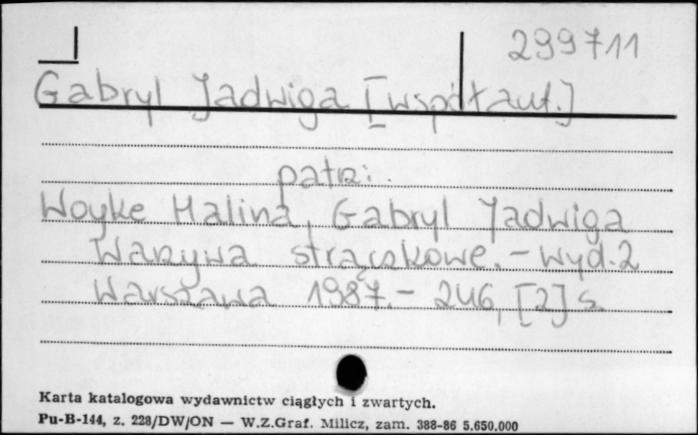 299711
Gabryl Jadwiga [współaut.]
patrz:
Woyke Halina, Gabryl Jadwiga
Warzywa strączkowe. – Wyd. 2
Warszawa 1987. – 246, [2] s.
Karta katalogowa wydawnictw ciągłych i zwartych.
Pu-B-144, z. 228/DW/ON — W.Z.Graf. Milicz, zam. 388-86 5.650.000